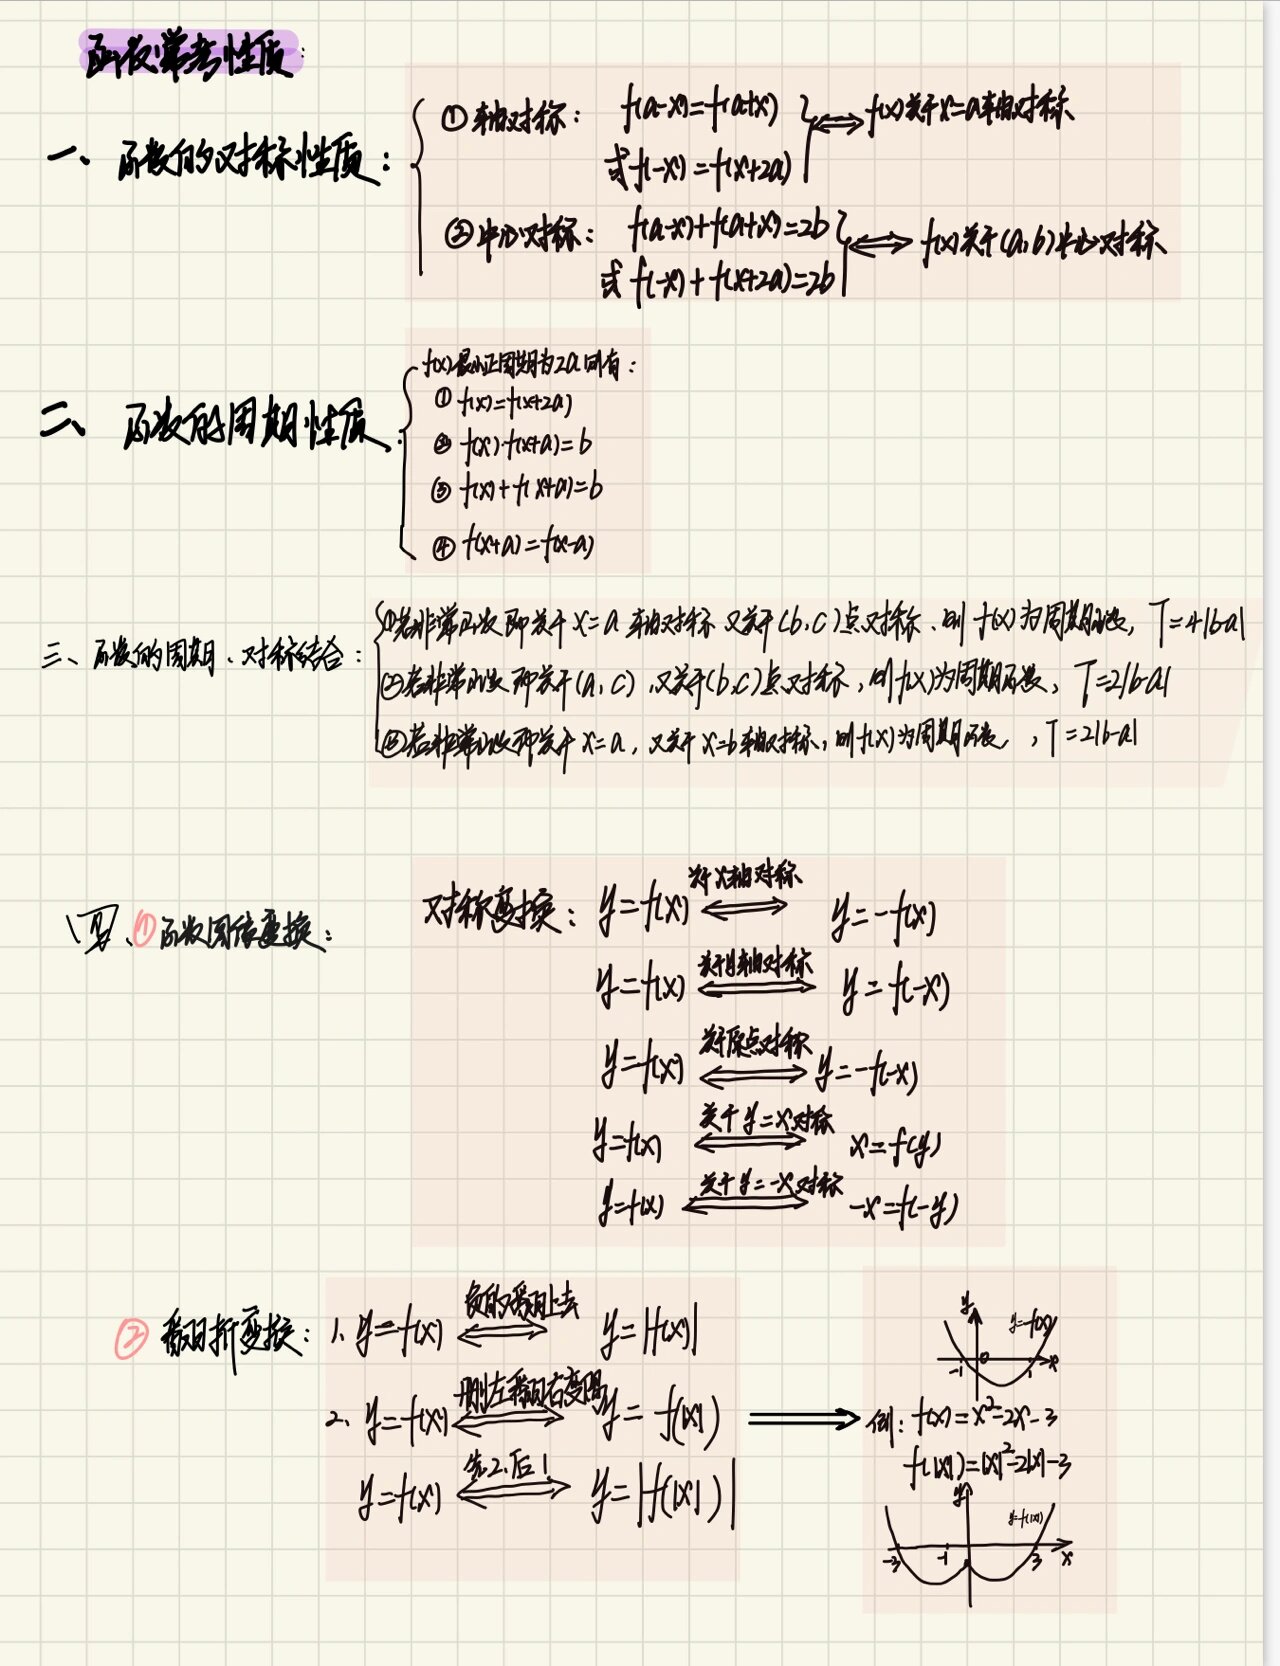 函数常考性质：
一、函数的对称性质：
①轴对称： f(a-x)=f(a+x)
或f(-x)=f(x+2a)
⟺ f(x)关于x=a轴对称
②中心对称： f(a-x)+f(a+x)=2b
或 f(-x)+f(x+2a)=2b
⟺ f(x)关于(a,b)中心对称
二、函数的周期性质：
f(x)最小正周期为2a 则有：
① f(x)=f(x+2a)
② f(x)·f(x+a)=b
③ f(x)+f(x+a)=b
④ f(x+a)=f(x-a)
三、函数的周期、对称结合：
①若非常函数即关于x=a 轴对称 又关于(b,c)点对称、则 f(x)为周期函数, T=4|b-a|
②若非常函数即关于(a,c),又关于(b,c)点对称,则f(x)为周期函数, T=2|b-a|
③若非常函数即关于x=a,又关于x=b轴对称,则f(x)为周期函数,,T=2|b-a|
四、①函数图像变换：
对称变换： y=f(x) 关于x轴对称 ⟺ y=-f(x)
y=f(x) 关于y轴对称 ⟺ y=f(-x)
y=f(x) 关于原点对称 ⟺ y=-f(-x)
y=f(x) 关于y=x对称 ⟺ x=f(y)
y=f(x) 关于y=-x对称 ⟺ -x=f(-y)
② 翻折变换：
1、y=f(x) 负的翻上去 ⟺ y=|f(x)|
2、y=f(x) 删左翻右变偶 ⟺ y=f(|x|)
y=f(x) 先2后1 ⟺ y=|f(|x|)|
y
y=f(x)
-1 0 1 x
例：f(x)=x²-2x-3
f(|x|)=|x|²-2|x|-3
y
y=f(|x|)
-3 -1 3 x